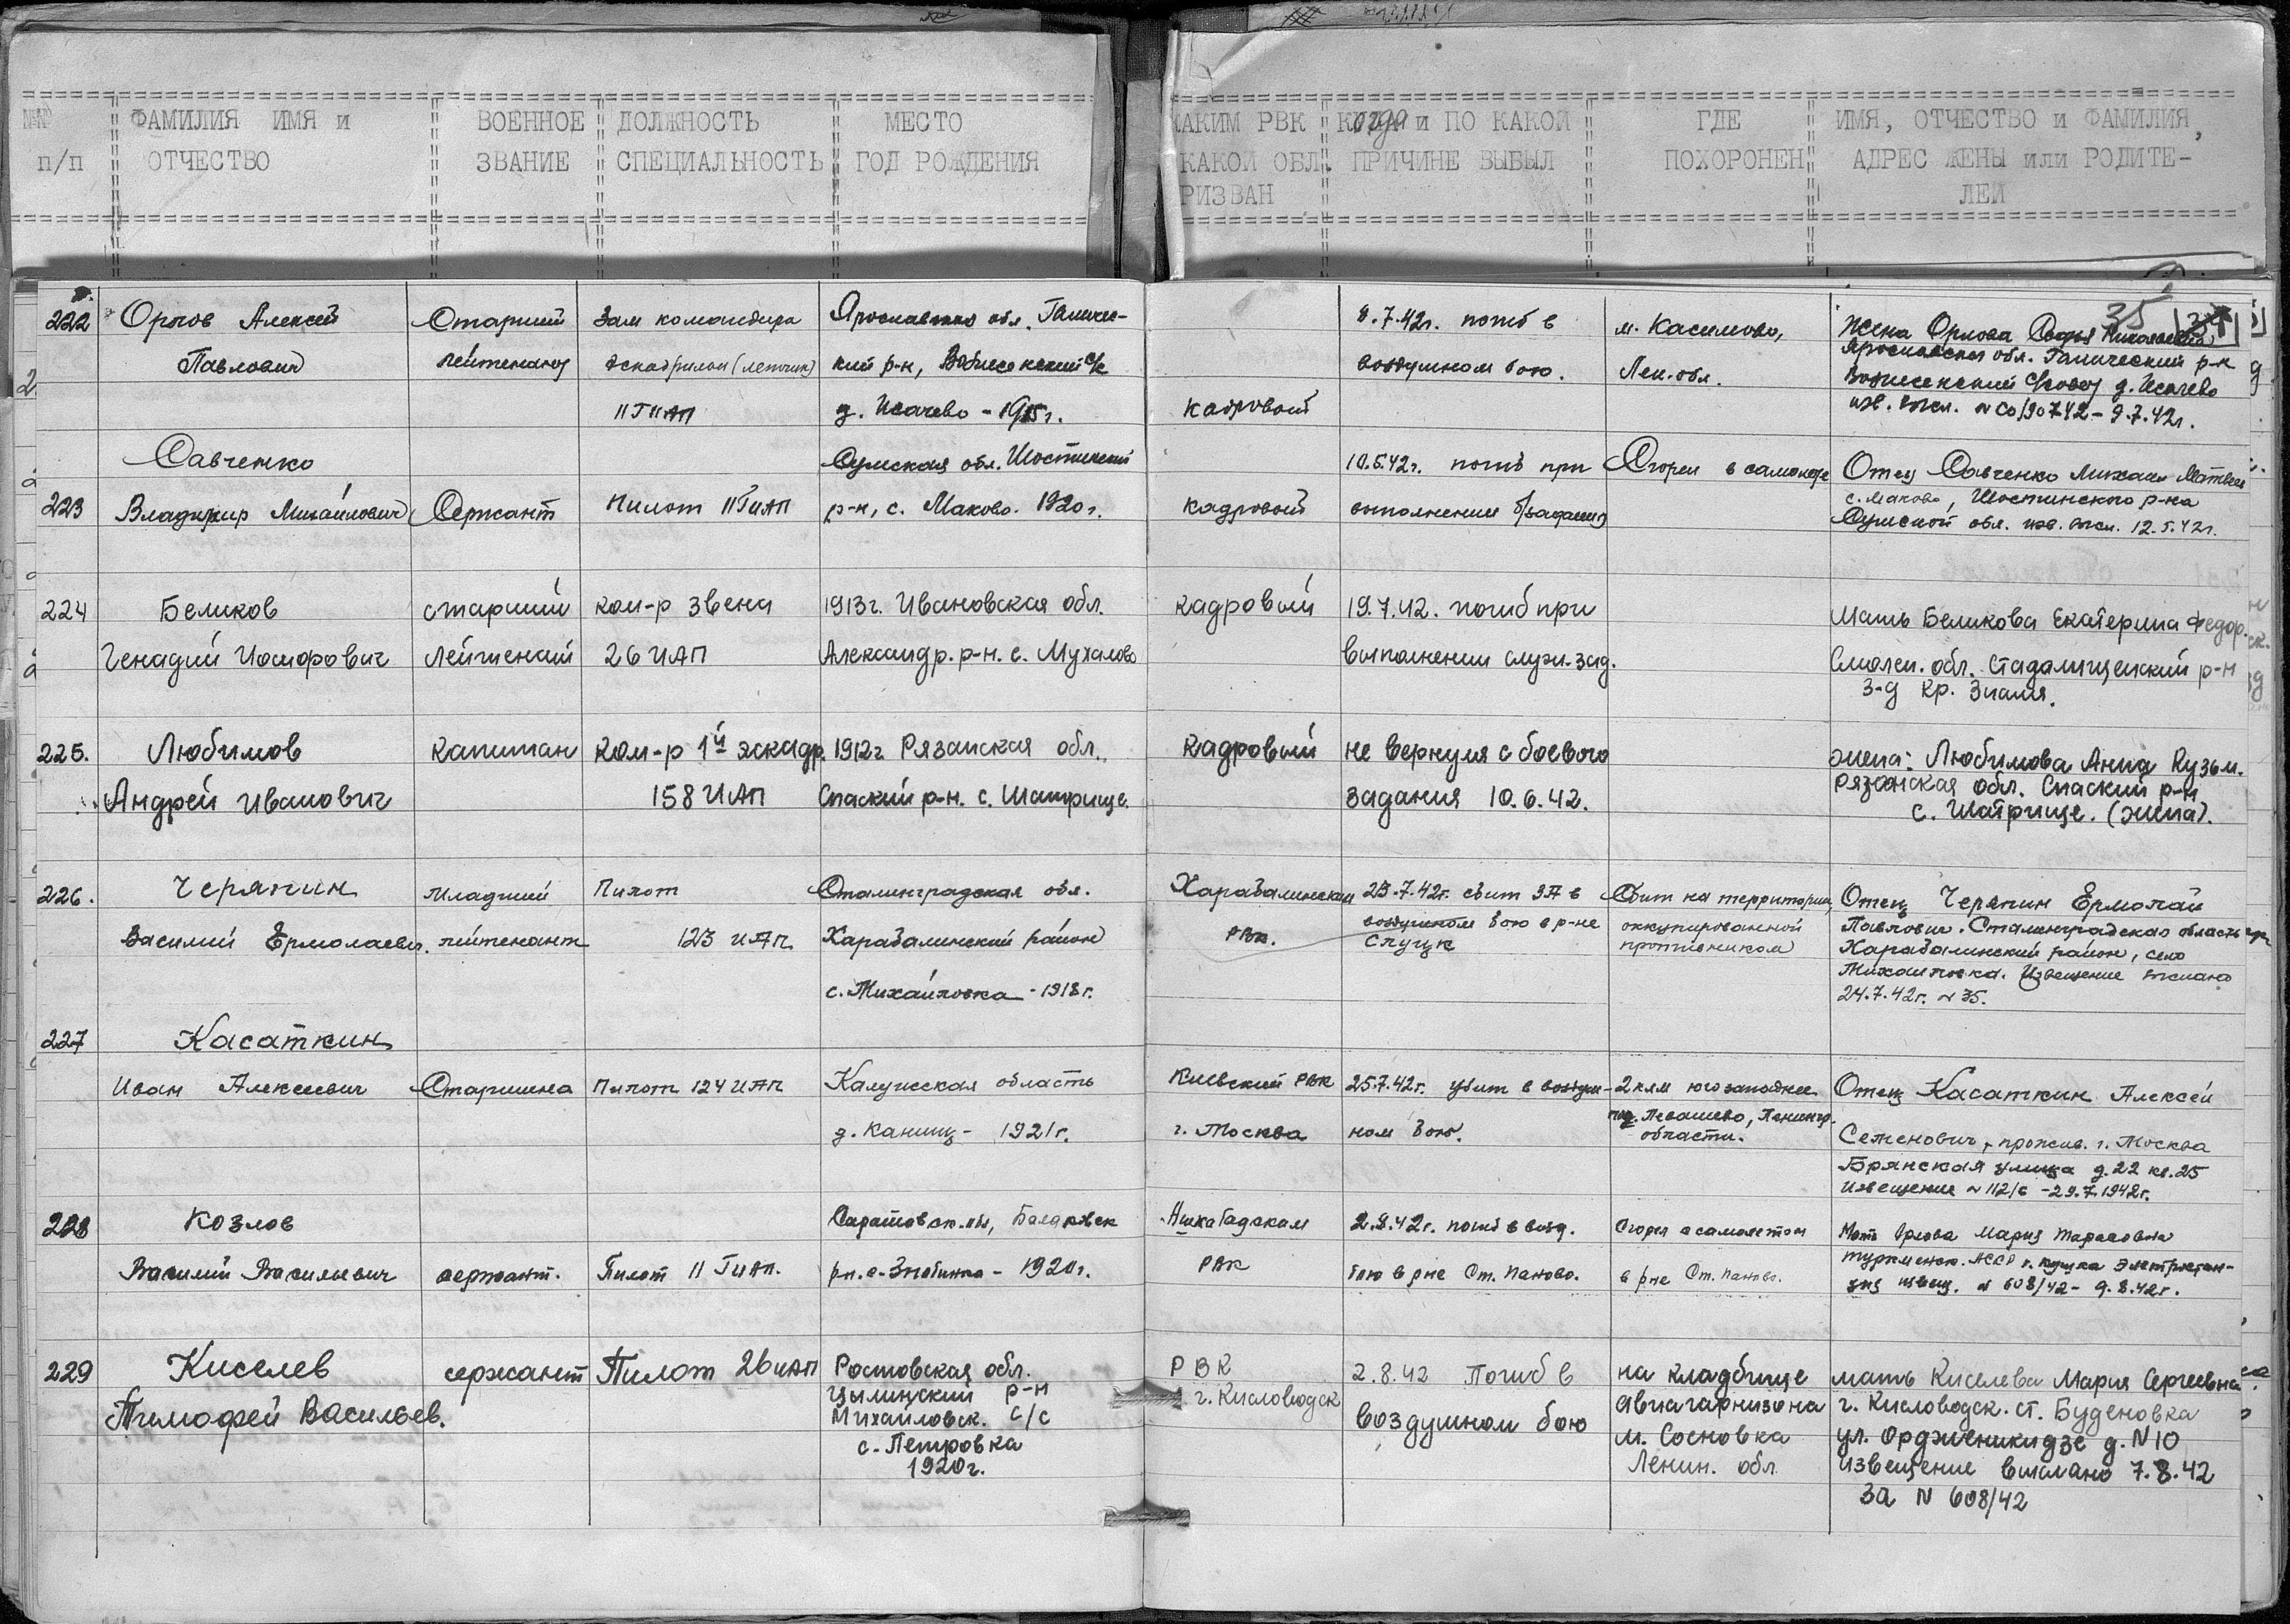 №№ п/п
ФАМИЛИЯ ИМЯ и ОТЧЕСТВО
ВОЕННОЕ ЗВАНИЕ
ДОЛЖНОСТЬ СПЕЦИАЛЬНОСТЬ
МЕСТО ГОД РОЖДЕНИЯ
КАКИМ РВК КАКОЙ ОБЛ. ПРИЗВАН
КОГДА и ПО КАКОЙ ПРИЧИНЕ ВЫБЫЛ
ГДЕ ПОХОРОНЕН
ИМЯ, ОТЧЕСТВО и ФАМИЛИЯ, АДРЕС ЖЕНЫ или РОДИТЕ-
ЛЕЙ
35
222
Орлов Алексей
Павлович
Старший
лейтенант
Зам командира
эскадрильи (летчик)
11 ГИАП
Ярославская обл. Галичес-
кий р-н, Вознесенский с/с
д. Исачево - 1915г.
кадровый
8.7.42г. погиб в
воздушном бою.
м. Касимово,
Лен. обл.
Жена Орлова Николаевна
Ярославская обл. Галический р-н
Вознесенский с/совет д. Исачево
изв. высл. - 9.7.42г.
223
Савченко
Владимир Михайлович
Сержант
Пилот 11 ГИАП
Сумская обл. Шостинский
р-н, с. Маково. 1920г.
кадровый
10.5.42г. погиб при
выполнении б/задания
Сгорел в самолете
Отец Савченко Михаил Матвеев
с. Маково, Шостинского р-на
Сумской обл. изв. высл. 12.5.42г.
224
Беликов
Генадий Исидорович
старший
лейтенант
ком-р звена
26 ИАП
1913г. Ивановская обл.
Александр. р-н. с. Мухалово
кадровый
19.7.42. погиб при
выполнении служ. зад.
Мать Беликова Екатерина Федор.
Смолен. обл. р-н
з-д Кр. Знамя.
225.
Любимов
Андрей Иванович
капитан
ком-р 1й эскадр.
158 ИАП
1912г Рязанская обл.
Спаский р-н. с. Шатрище.
кадровый
не вернулся с боевого
задания 10.6.42.
жена: Любимова Анна Кузьм.
Рязанская обл. Спаский р-н
с. Шатрище. (жена).
226.
Черяпин
Василий Ермолаевич.
Младший
лейтенант
Пилот
123 ИАП
Сталинградская обл.
Харабалинский район
с. Михайловка - 1918г.
Харабалинский
РВК.
23.7.42г. сбит ЗА в
воздушном бою в р-не
Слуцк
Сбит на территории,
оккупированной
противником
Отец Черяпин Ермолай
Павлович. Сталинградская область
Харабалинский район, село
Михайловка. Извещение выслано
24.7.42г. №35.
227
Касаткин
Иван Алексеевич
Старшина
Пилот 124 ИАП
Калужская область
д. Канищ - 1921г.
Киевский РВК
г. Москва
25.7.42г. убит в воздуш-
ном бою.
2 клм югозападнее
Левашево, Ленингр.
области.
Отец Касаткин Алексей
Семенович, прожив. г. Москва
Брянская улица д.22 кв.25
Извещение №112/с - 29.7.1942г.
228
Козлов
Василий Васильевич
сержант.
Пилот 11 ГИАП.
Саратовск. обл, Балаковск
рн. с. - 1920г.
Ашхабадским
РВК
2.8.42г. погиб в возд.
бою в рне Ст. Паново.
Сгорел с самолетом
в рне Ст. Паново.
Мать Орлова Мария Тарасовна
Туркменск. ССР г. Кушка Электростан-
ция извещ. № 608/42 - 9.8.42г.
229
Киселев
Тимофей Васильев.
сержант
Пилот 26 ИАП
Ростовская обл.
Цымлнский р-н
Михайловск. с/с
с. Петровка
1920г.
РВК
г. Кисловодск
2.8.42 Погиб в
воздушном бою
на кладбище
авиагарнизона
м. Сосновка
Ленин. обл
мать Киселева Мария Сергеевна
г. Кисловодск. ст. Буденовка
ул. Ордженикидзе д. N10
извещение выслано 7.8.42
за N 608/42